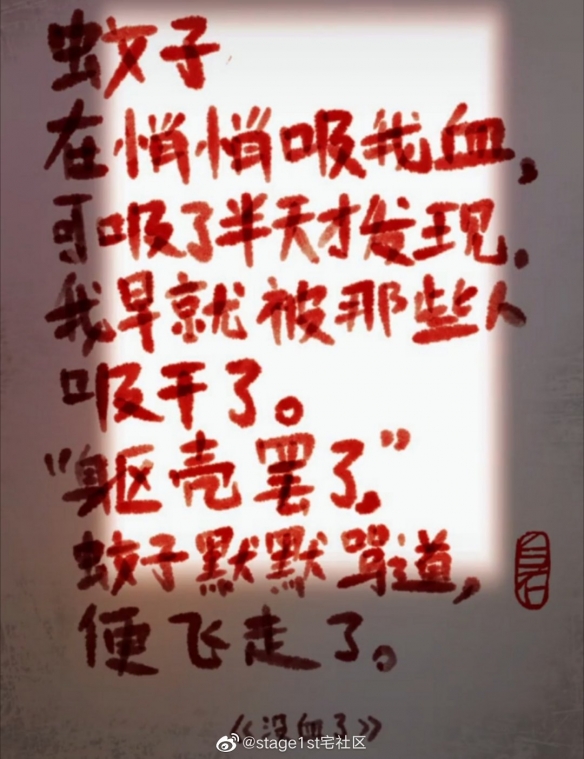 蚊子
在悄悄吸我血，
可吸了半天才发现，
我早就被那些人
吸干了。
“躯壳罢了。”
蚊子默默骂道，
便飞走了。
《没血了》
@stage1st宅社区